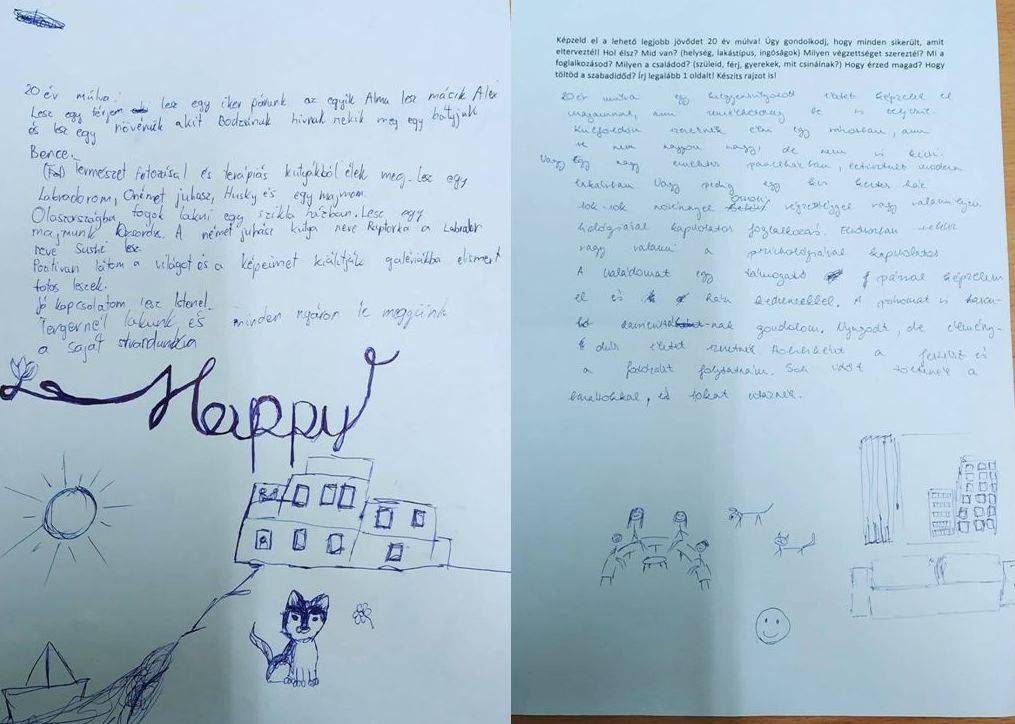 20 év múlva:
Lesz egy férjem lesz egy iker párunk az egyik Alma lesz másik Alex
és lesz egy nővérük akit Bodzának hívnak nekik meg egy bátyjuk
Bence.
Természet fotózásal és terápiás kutyákból élek meg. Lesz egy
Labradorom, Német juhász, Husky és egy majmom.
Olaszországba fogok lakni egy szikla házban. Lesz egy
majmunk. A német juhász kutya neve Raptorka a Labrador
neve Sushi lesz.
látom a világot és a képeimet kiálítják galériákba elismert
fotos leszek.
Jó kapcsolatom lesz Istenel.
lakunk és minden nyáron le megyünk
a saját
Happy
Képzeld el a lehető legjobb jövődet 20 év múlva! Úgy gondolkodj, hogy minden sikerült, amit
elterveztél! Hol élsz? Mid van? (helység, lakástípus, ingóságok) Milyen végzettséget szereztél? Mi a
foglalkozásod? Milyen a családod? (szüleid, férj, gyerekek, mit csinálnak?) Hogy érzed magad? Hogy
töltöd a szabadidőd? Írj legalább 1 oldalt! Készíts rajzot is!
20 év múlva egy életet képzelek el
magamnak, ami remélhetőleg be is teljesül.
Külföldön szeretnék élni egy városban, ami
se nem nagyon nagy, de nem is kicsi.
Vagy egy nagy emeletes panelházban, modern
lakásban vagy pedig egy kis kertes ház
sok-sok növénnyel. orvosi végzettséggel vagy valamilyen
biológiával kapcsolatos foglalkozás.
vagy valami a pszichológiával kapcsolatos
A családomat egy támogató párral képzelem
el és házikedvencekkel. A
-nak gondolom. Nyugodt, de élmény-
dús életet szeretnék. Hobbiként a festést és
a folytatnám. Sok időt töltenék a
barátokkal, és sokat utaznék.